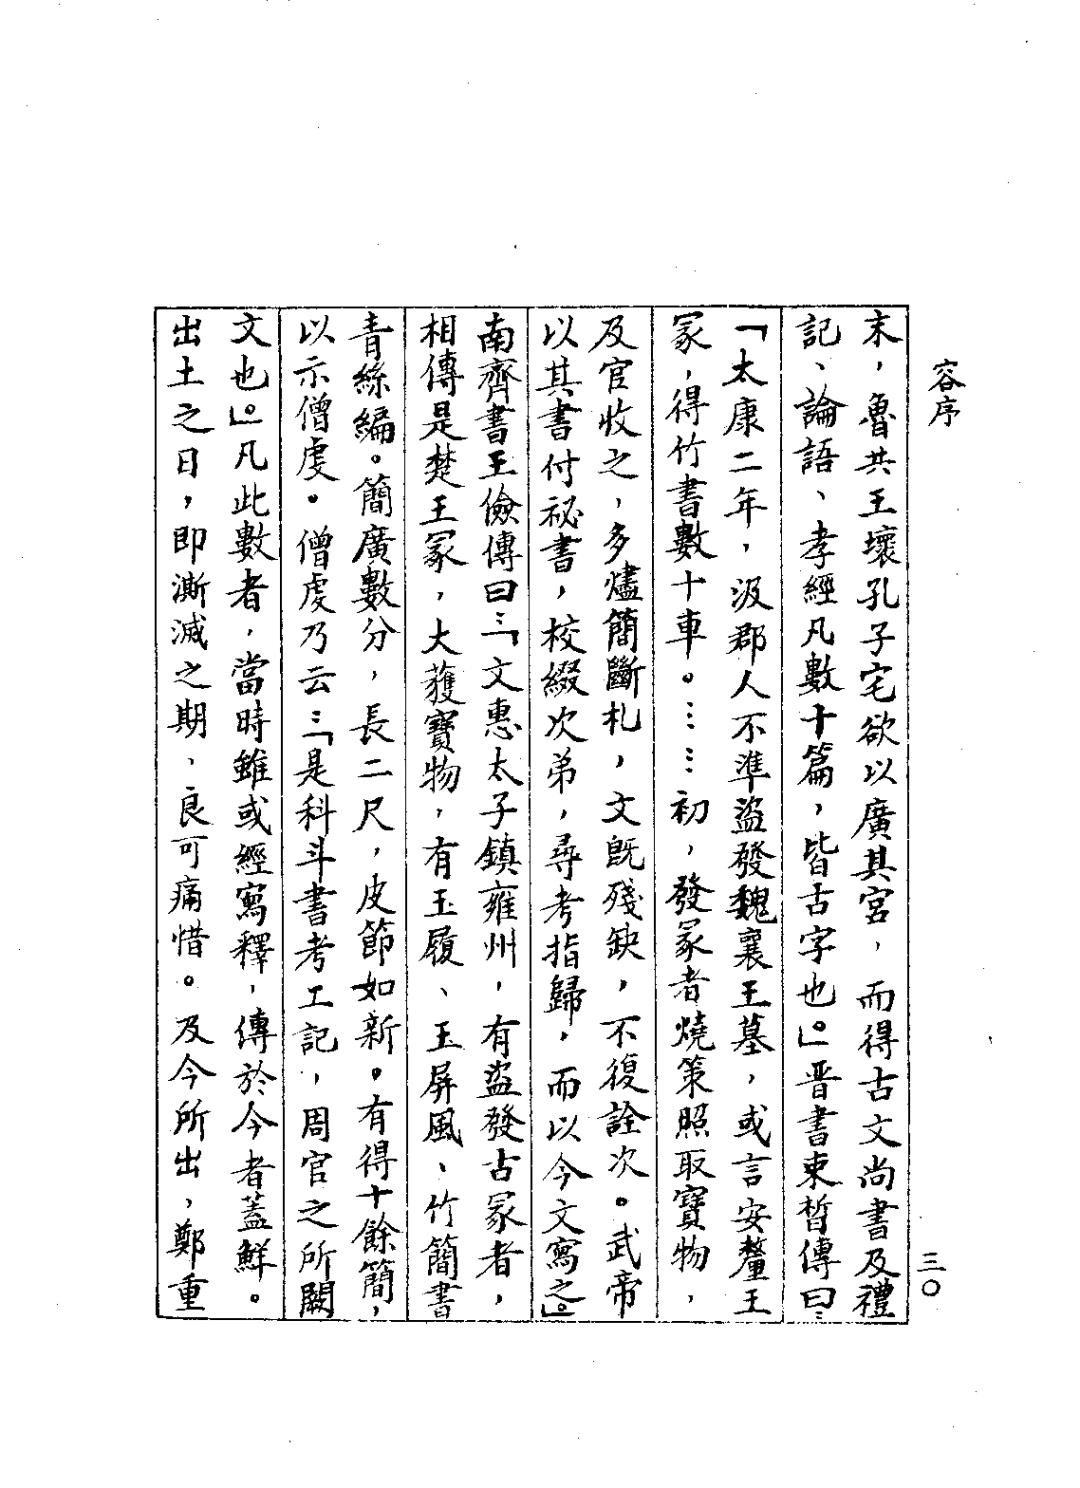 容序
三〇
末，魯共王壞孔子宅欲以廣其宮，而得古文尚書及禮
記、論語、孝經凡數十篇，皆古字也。」晋書束晳傳曰：
「太康二年，汲郡人不準盜發魏襄王墓，或言安釐王
冢，得竹書數十車。……初，發冢者燒策照取寶物，
及官收之，多燼簡斷札，文既殘缺，不復詮次。武帝
以其書付祕書，校綴次弟，尋考指歸，而以今文寫之。」
南齊書王儉傳曰：「文惠太子鎮雍州，有盜發古冢者，
相傳是楚王冢，大獲寶物，有玉履、玉屏風、竹簡書
青絲編。簡廣數分，長二尺，皮節如新。有得十餘簡，
以示僧虔。僧虔乃云：「是科斗書考工記，周官之所闕
文也。」凡此數者，當時雖或經寫釋，傳於今者蓋鮮。
出土之日，即澌滅之期，良可痛惜。及今所出，鄭重